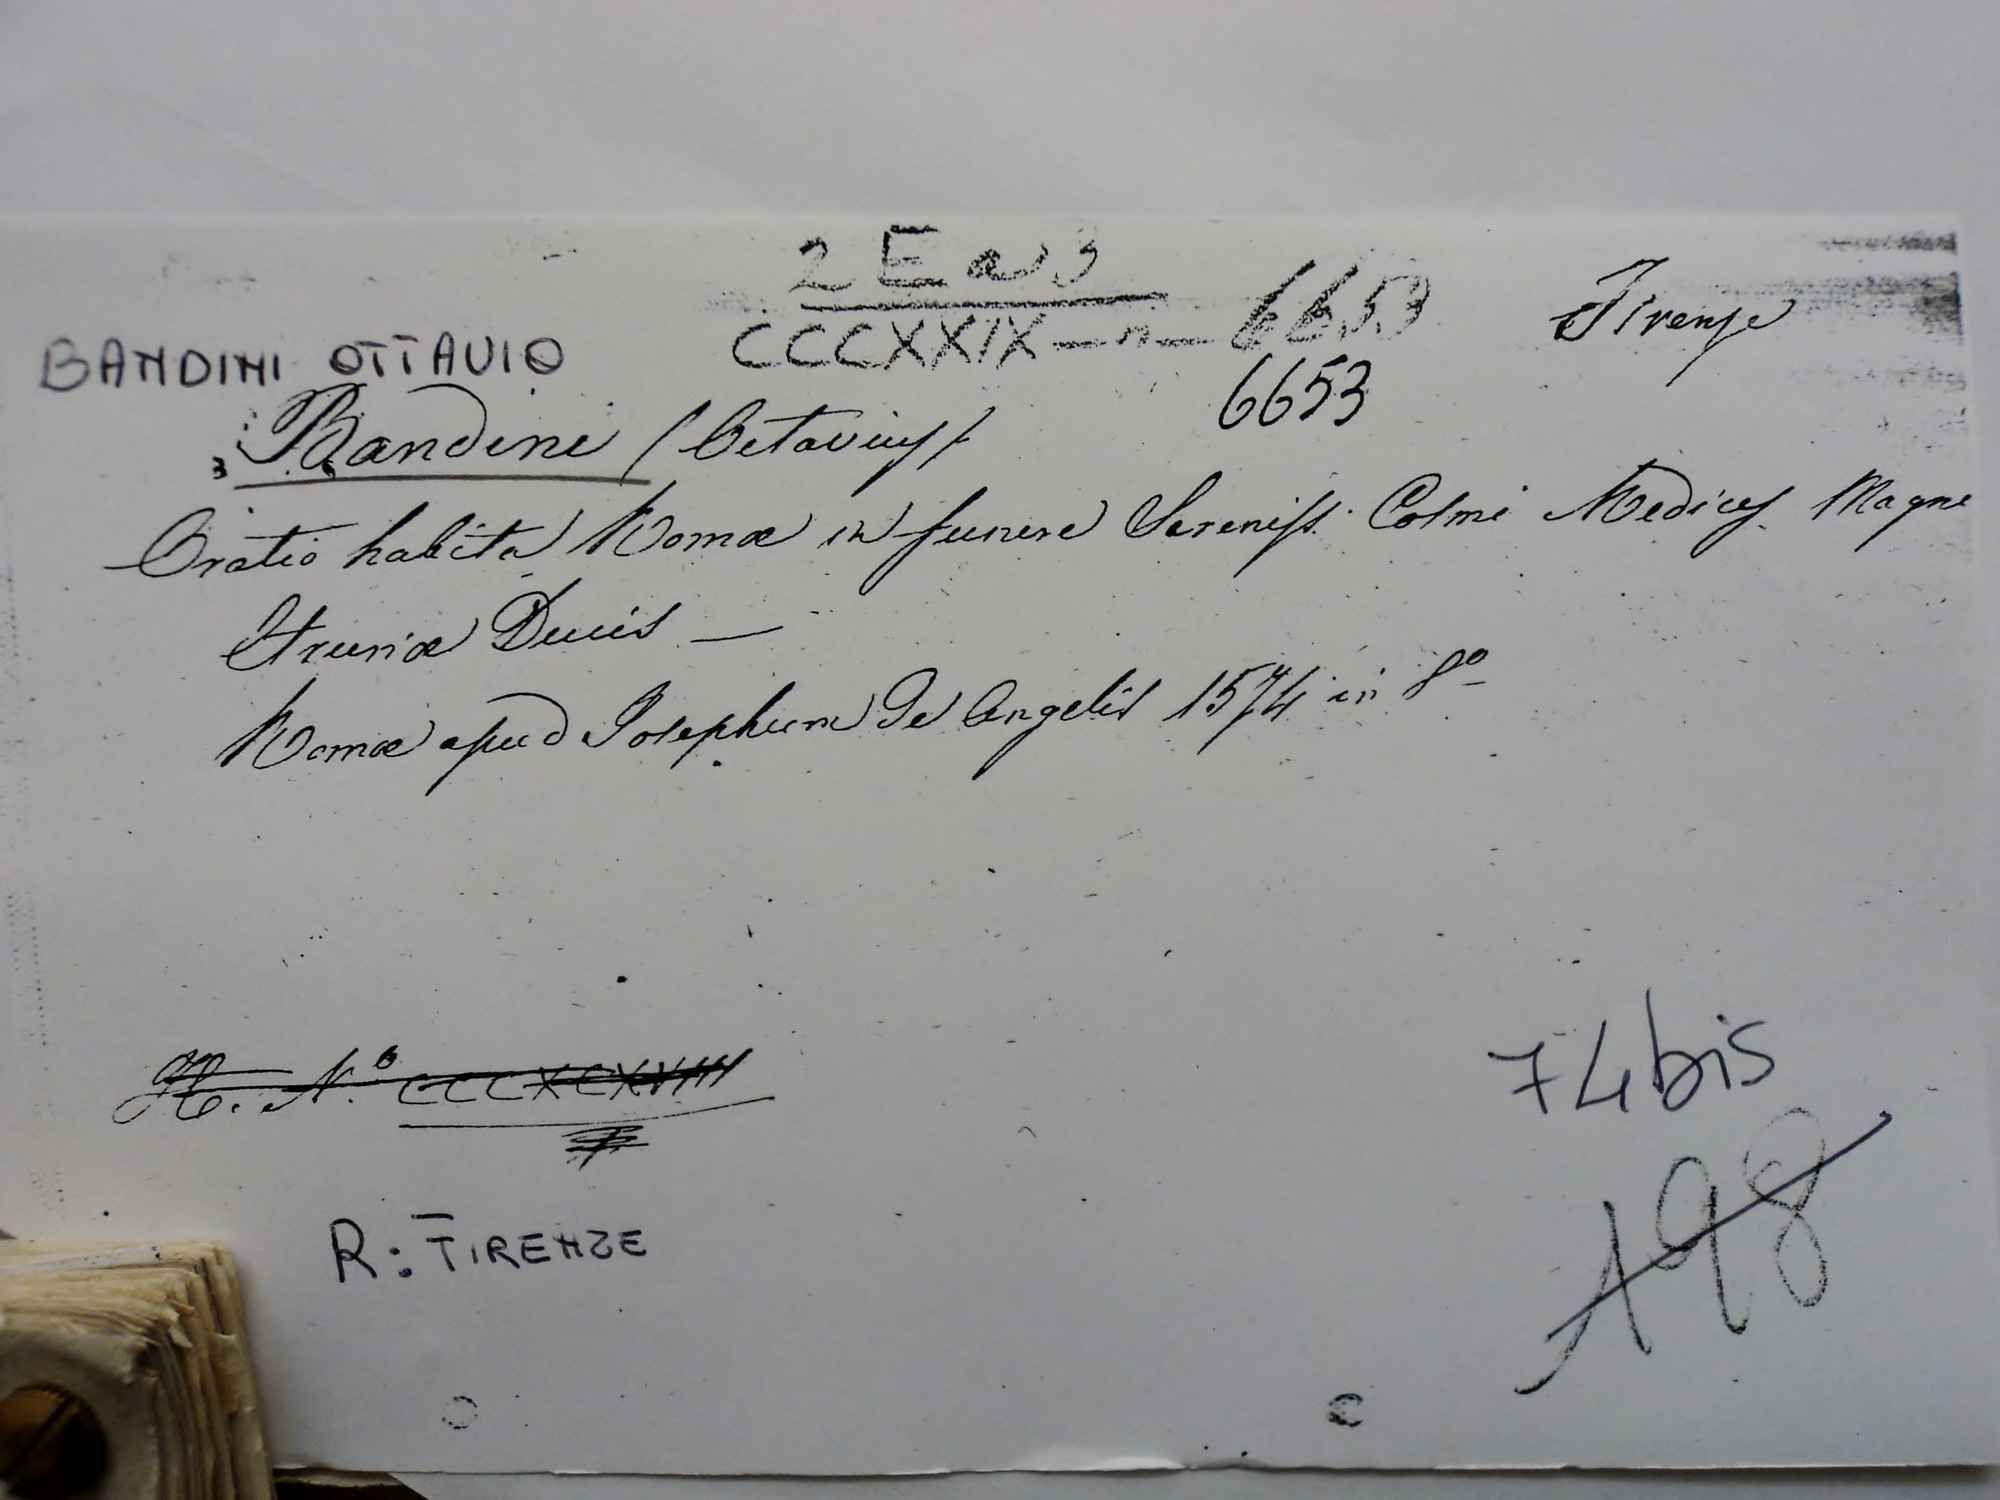 2 E a 3
CCCXXIX — n — 6653
Firenze
BANDINI OTTAVIO
6653
Bandini (Octavius)
Oratio habita Romæ in funere Sereniss. Cosmi Medices Magni
Etruriæ Ducis —
Romæ apud Josephum de Angelis 1574 in 8º
H. Nº CCCXCXVIIII
74 bis
R: FIRENZE
198